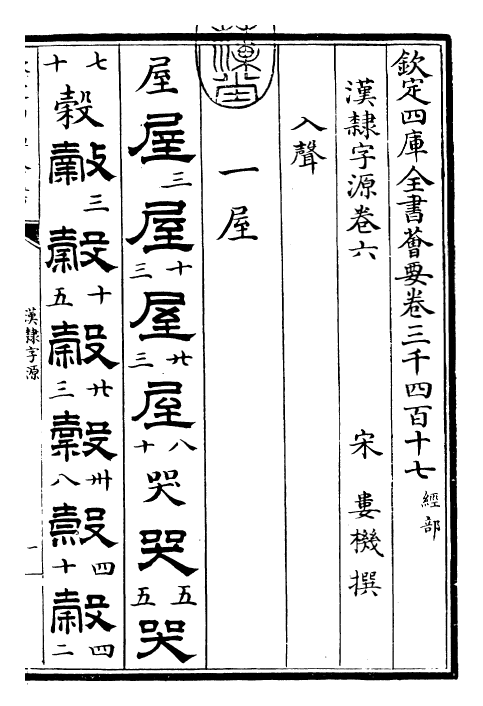 欽定四庫全書薈要卷三千四百十七 經部
漢隸字源卷六 宋 婁機撰
入聲
一屋
屋屋三屋十三屋廿三屋八十哭哭五五哭
七十穀穀三穀十五穀廿三穀卅八穀四十穀四二
漢隸字源
一